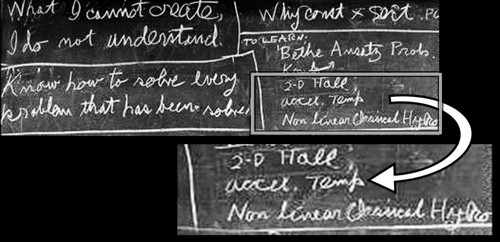 What I cannot create,
I do not understand.
Know how to solve every
problem that has been solved
Why const × sort
TO LEARN:
Bethe Ansatz Prob.
Kondo
2-D Hall
accel. Temp
Non linear Classical Hydro
2-D Hall
accel. Temp
Non linear Classical Hydro